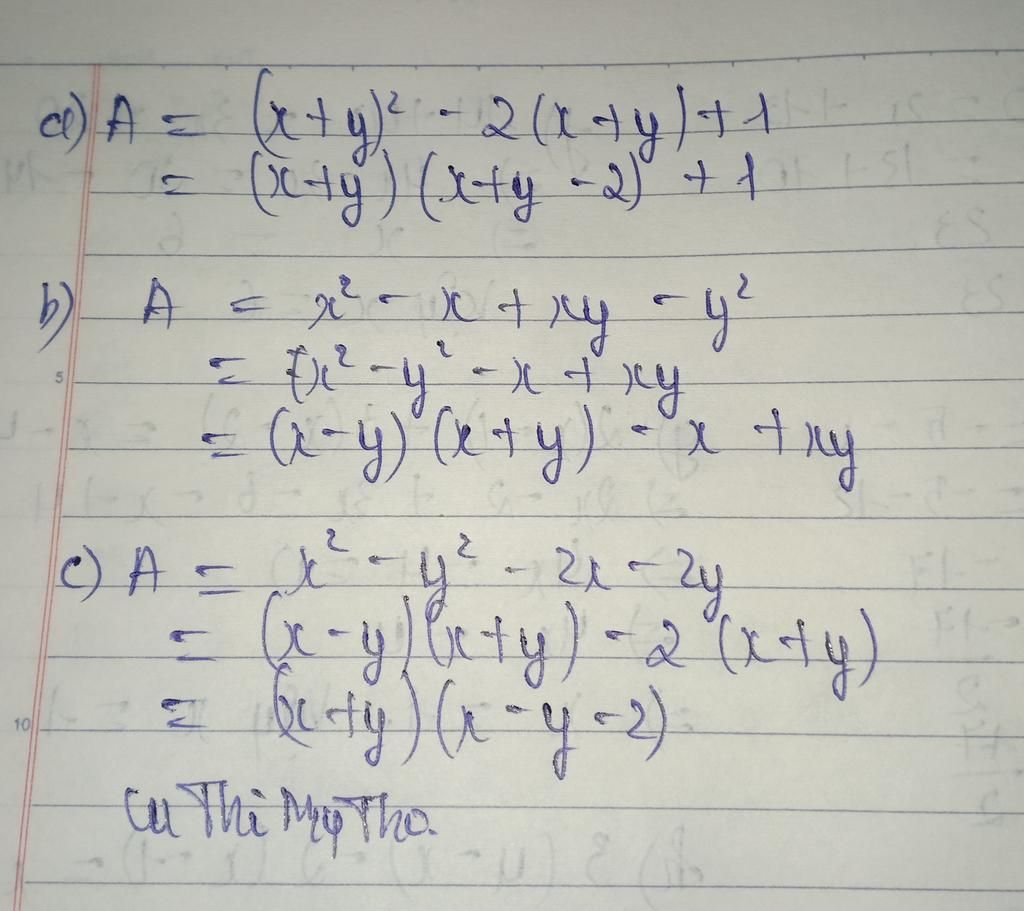 a) A = (x+y)² - 2(x+y)+1
= (x+y)(x+y-2) + 1
b) A = x² - x + xy - y²
= x² - y² - x + xy
5
= (x-y)(x+y) - x + xy
c) A = x² - y² - 2x - 2y
= (x-y)(x+y) - 2(x+y)
10
= (x+y)(x-y-2)
Thi My Tho.